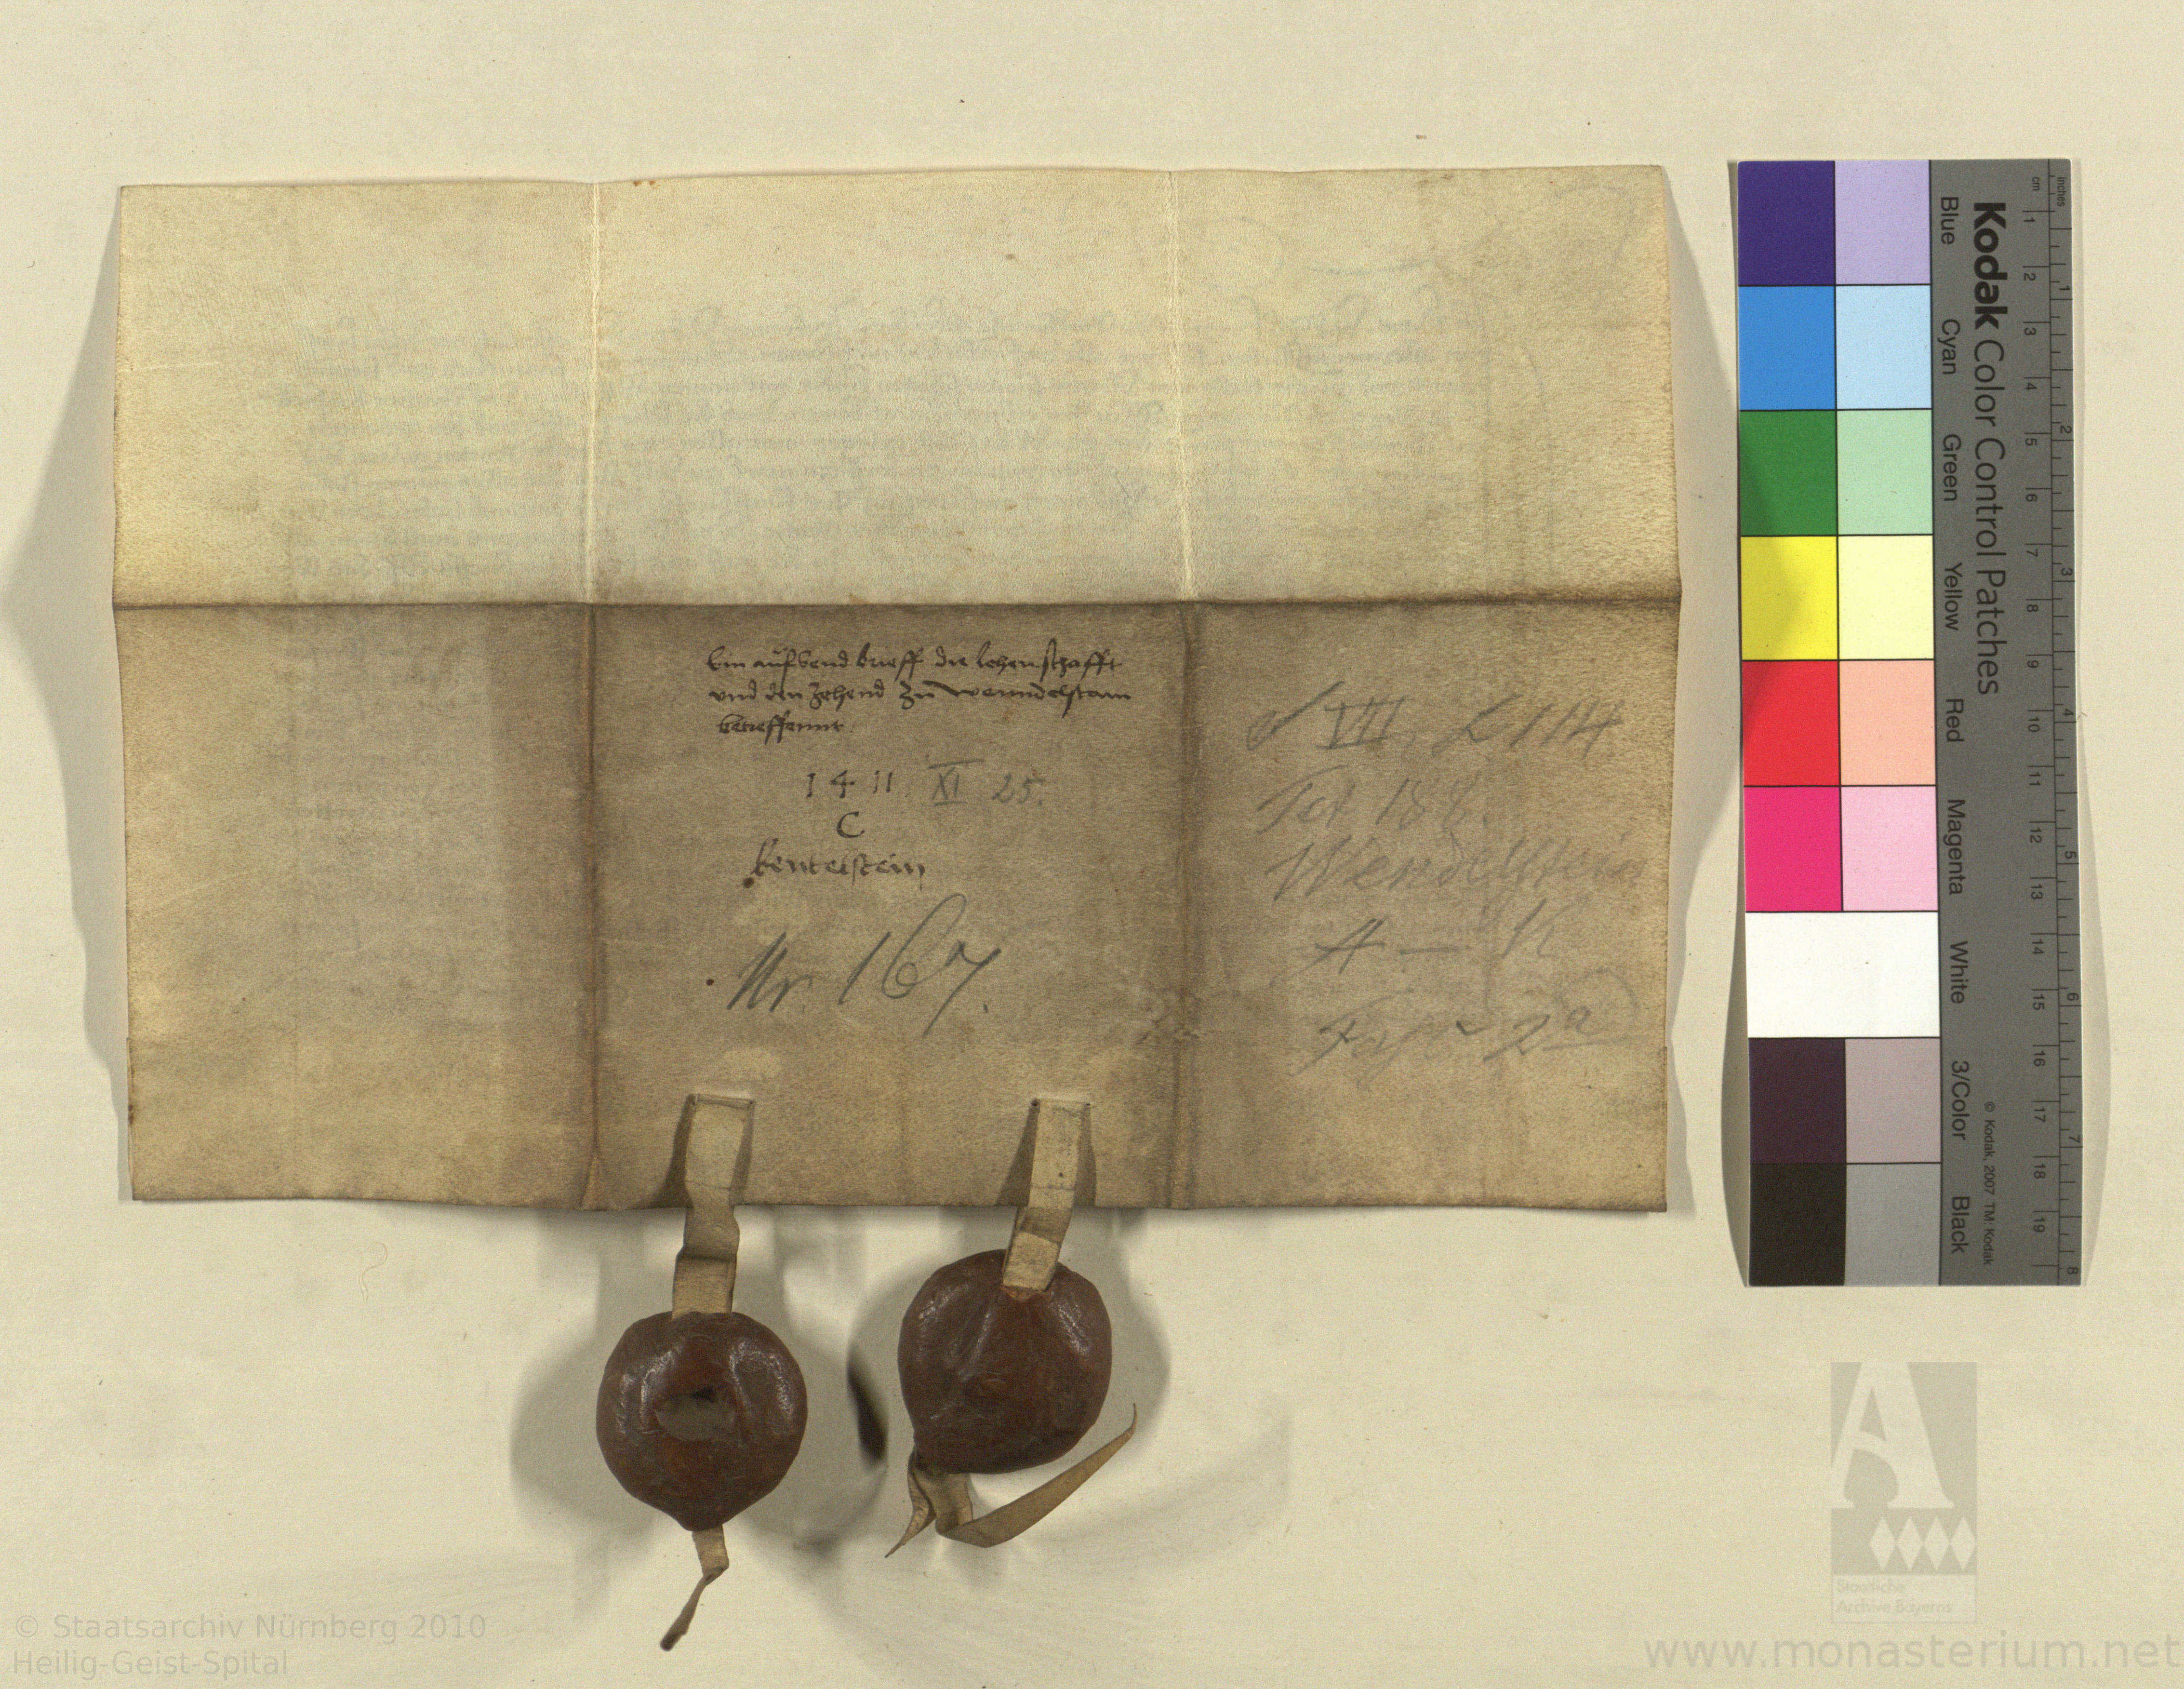 Ein aufsend brieff die lehenschafft
vnd den zehend zu wenndelstain
betreffennt
1411 XI 25.
C
Wendelstein
Nr. 167.
VII,
188.
Wendelstein
A — K
2a
Kodak Color Control Patches
Blue Cyan Green Yellow Red Magenta White 3/Color Black
© Kodak, 2007 TM: Kodak
cm 1 2 3 4 5 6 7 8 9 10 11 12 13 14 15 16 17 18 19
inches 1 2 3 4 5 6 7 8
Staatliche
Archive Bayerns
© Staatsarchiv Nürnberg 2010
Heilig-Geist-Spital
www.monasterium.net